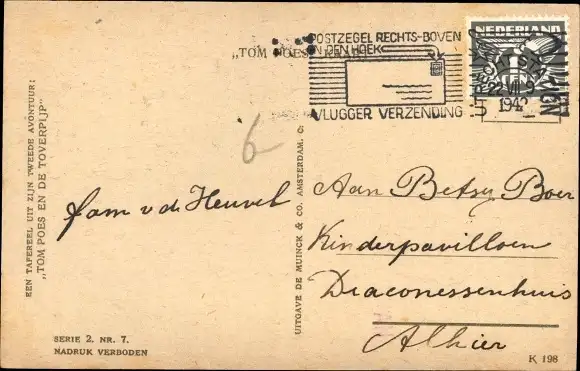 POSTZEGEL RECHTS-BOVEN
IN DEN HOEK
VLUGGER VERZENDING
NEDERLAND
22 VII 9
1942
„TOM POES"
6
EEN TAFEREEL UIT ZIJN TWEEDE AVONTUUR:
„TOM POES EN DE TOVERPIJP"
fam v d Heuvel
UITGAVE DE MUINCK & CO. AMSTERDAM. C.
Aan Betsy Boer
Kinderpavilloen
Diaconessenhuis
Alhier
SERIE 2. NR. 7.
NADRUK VERBODEN
K 198